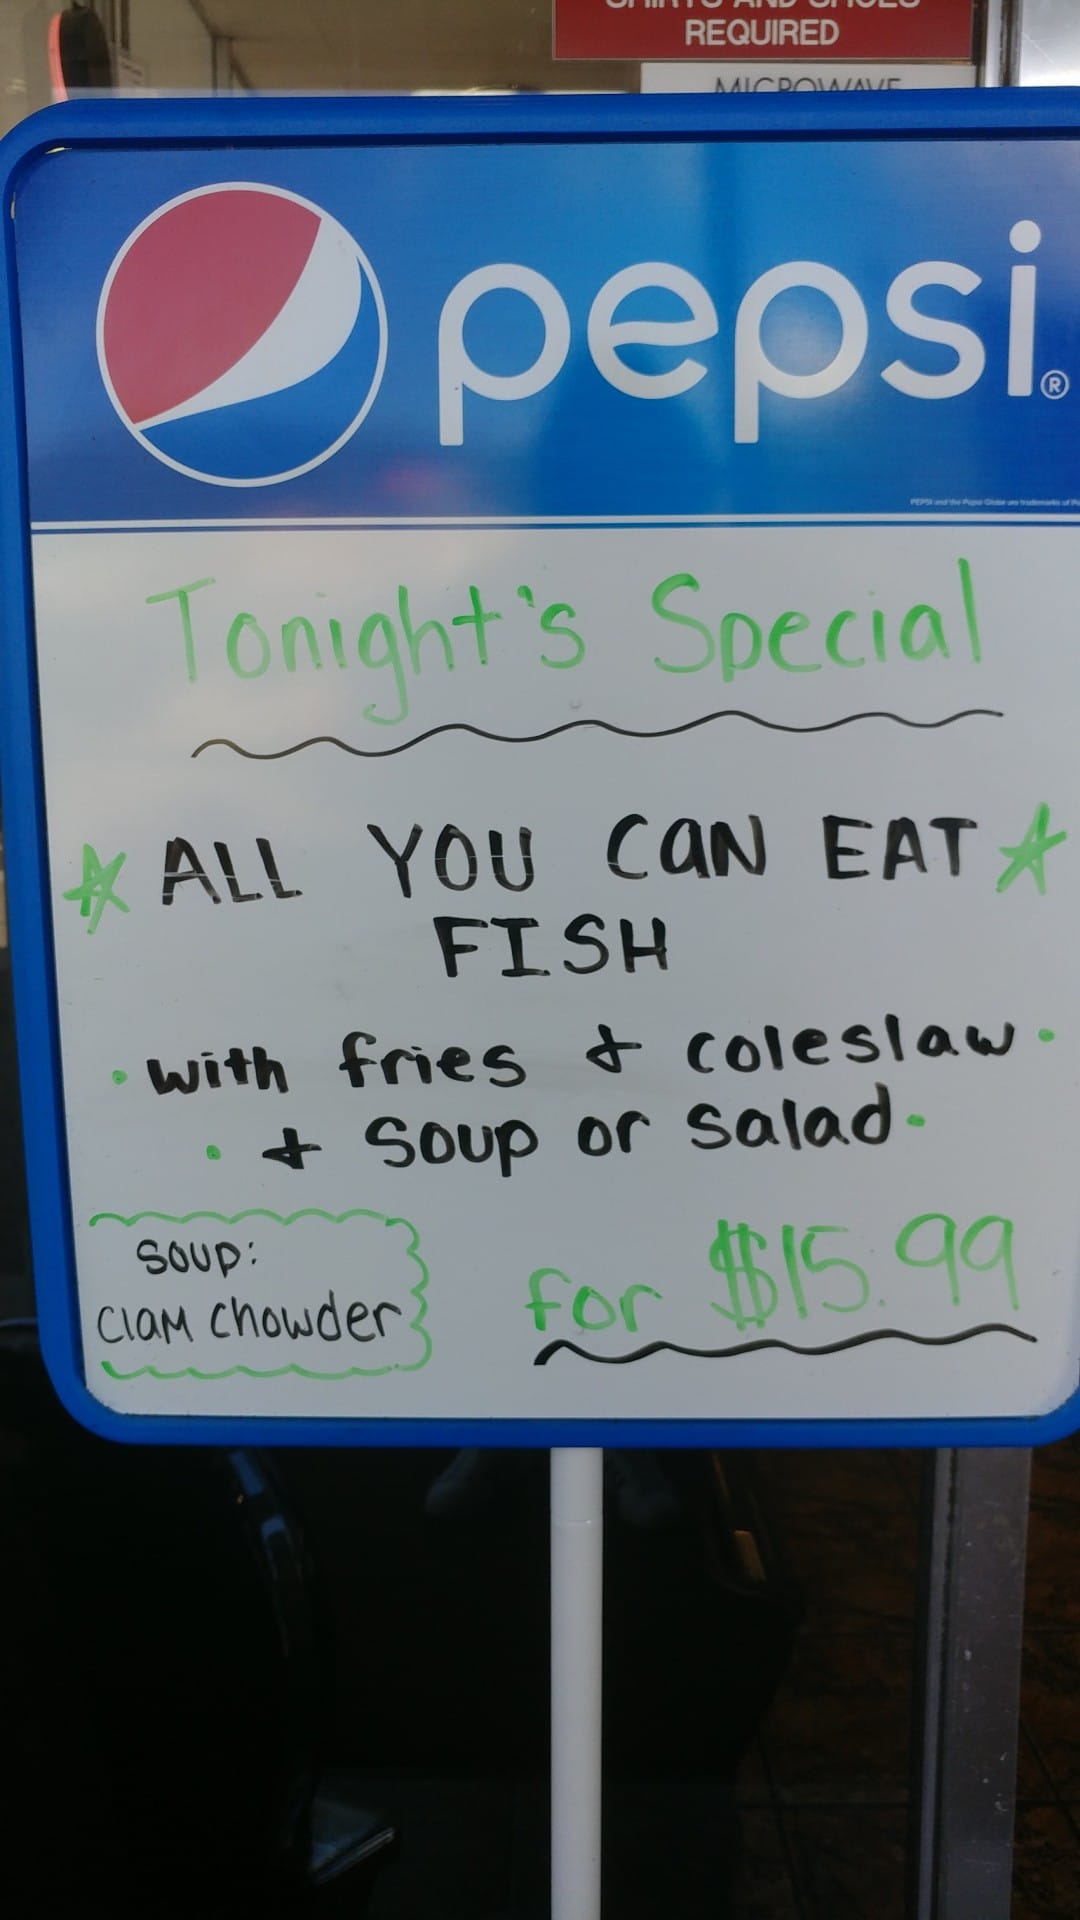 SHIRTS AND SHOES
REQUIRED
MICROWAVE
pepsi®
PEPSI and the Pepsi Globe are trademarks of
Tonight's Special
ALL YOU CAN EAT
FISH
with fries & coleslaw
+ soup or salad
SOUP:
Clam Chowder
for $15.99